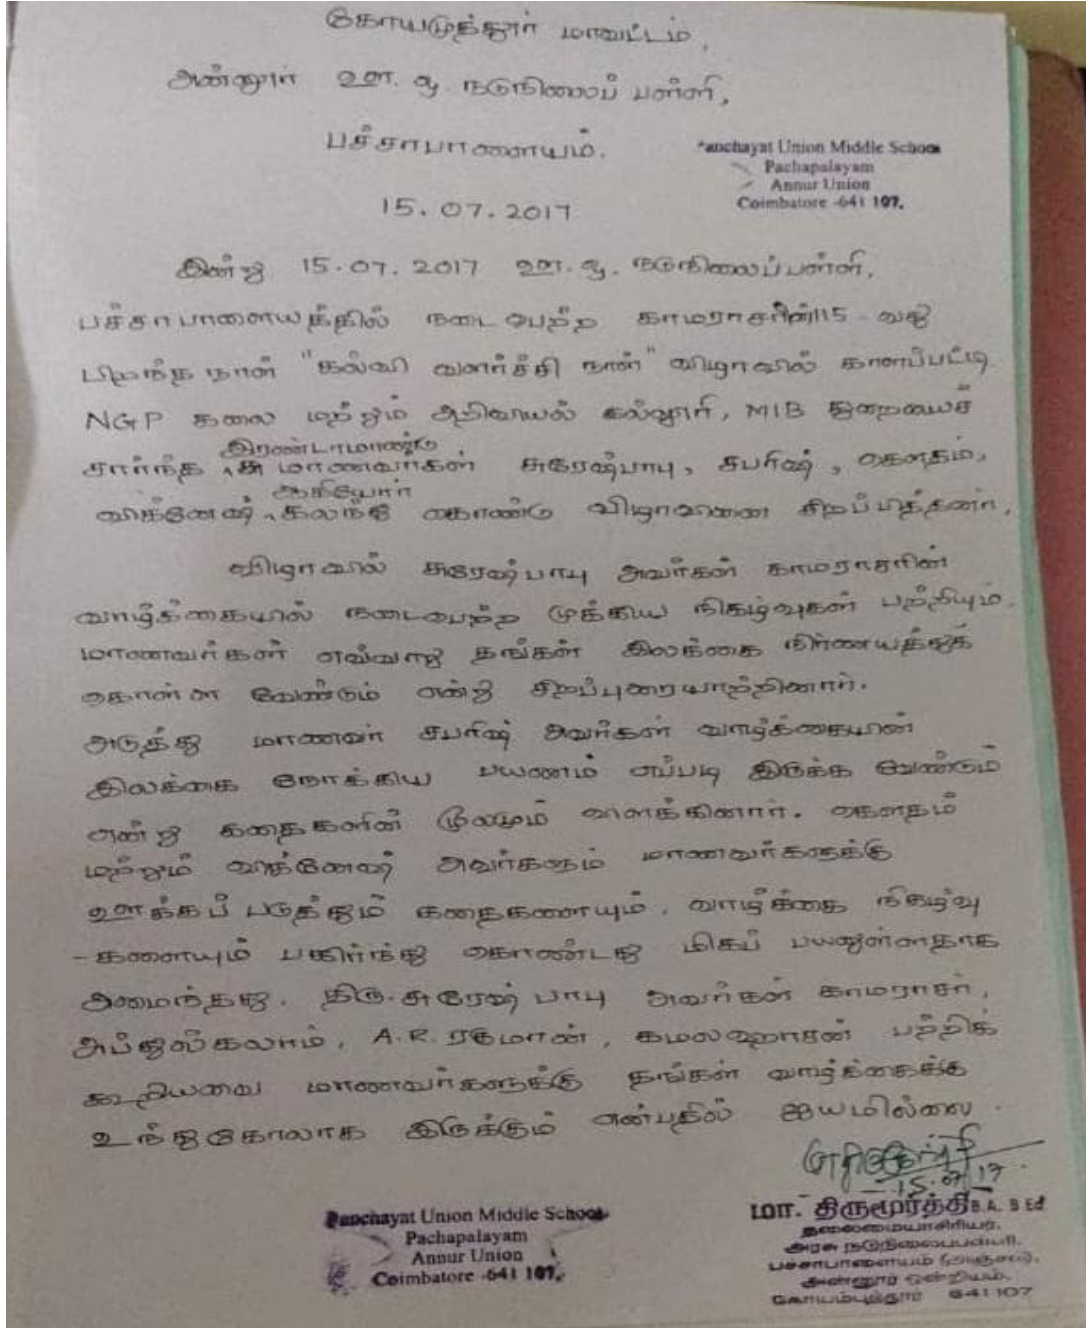 கோயமுத்தூர் மாவட்டம்,
அன்னூர் ஊ. ஒ. நடுநிலைப் பள்ளி,
பச்சாபாளையம்.
Panchayat Union Middle School
Pachapalayam
Annur Union
Coimbatore -641 107.
15.07.2017
இன்று 15.07.2017 ஊ. ஒ. நடுநிலைப்பள்ளி,
பச்சாபாளையத்தில் நடைபெற்ற காமராசரின் 115 - வது
பிறந்த நாள் "கல்வி வளர்ச்சி நாள்" விழாவில் காளப்பட்டி
NGP கலை மற்றும் அறிவியல் கல்லூரி, MIB துறையைச்
சார்ந்த இரண்டாமாண்டு மாணவர்கள் சுரேஷ்பாபு, சபரிஷ், கௌதம்,
விக்னேஷ் ஆகியோர் கலந்து கொண்டு விழாவினை சிறப்பித்தனர்.
விழாவில் சுரேஷ்பாபு அவர்கள் காமராசரின்
வாழ்க்கையில் நடைபெற்ற முக்கிய நிகழ்வுகள் பற்றியும்,
மாணவர்கள் எவ்வாறு தங்கள் இலக்கை நிர்ணயத்துக்
கொள்ள வேண்டும் என்று சிறப்புரையாற்றினார்.
அடுத்து மாணவர் சபரிஷ் அவர்கள் வாழ்க்கையின்
இலக்கை நோக்கிய பயணம் எப்படி இருக்க வேண்டும்
என்று கதைகளின் மூலமும் விளக்கினார். கௌதம்
மற்றும் விக்னேஷ் அவர்களும் மாணவர்களுக்கு
ஊக்கப் படுத்தும் கதைகளையும், வாழ்க்கை நிகழ்வு
-களையும் பகிர்ந்து கொண்டது மிகப் பயனுள்ளதாக
அமைந்தது. திரு. சுரேஷ் பாபு அவர்கள் காமராசர்,
அப்துல்கலாம், A.R. ரகுமான், கமலஹாசன் பற்றிக்
கூறியவை மாணவர்களுக்கு தங்கள் வாழ்க்கைக்கு
உந்துகோலாக இருக்கும் என்பதில் ஐயமில்லை.
15.07.17
மா. திருமூர்த்தி B.A. B Ed
தலைமையாசிரியர்,
அரசு நடுநிலைப்பள்ளி,
பச்சாபாளையம் (அஞ்சல்),
அன்னூர் ஒன்றியம்,
கோயம்புத்தூர் 641107
Panchayat Union Middle School
Pachapalayam
Annur Union
Coimbatore -641 107.